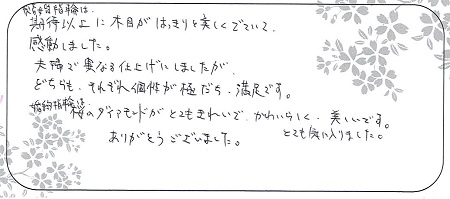 結婚指輪は、
期待以上に木目がはっきりと美しくでていて、
感動しました。
夫婦で異なる仕上げにしましたが、
どちらも、それぞれ個性が極だち、満足です。
婚約指輪は、
桜のダイアモンドがとてもきれいで、かわいらしく、美しいです。
とても気に入りました。
ありがとうございました。